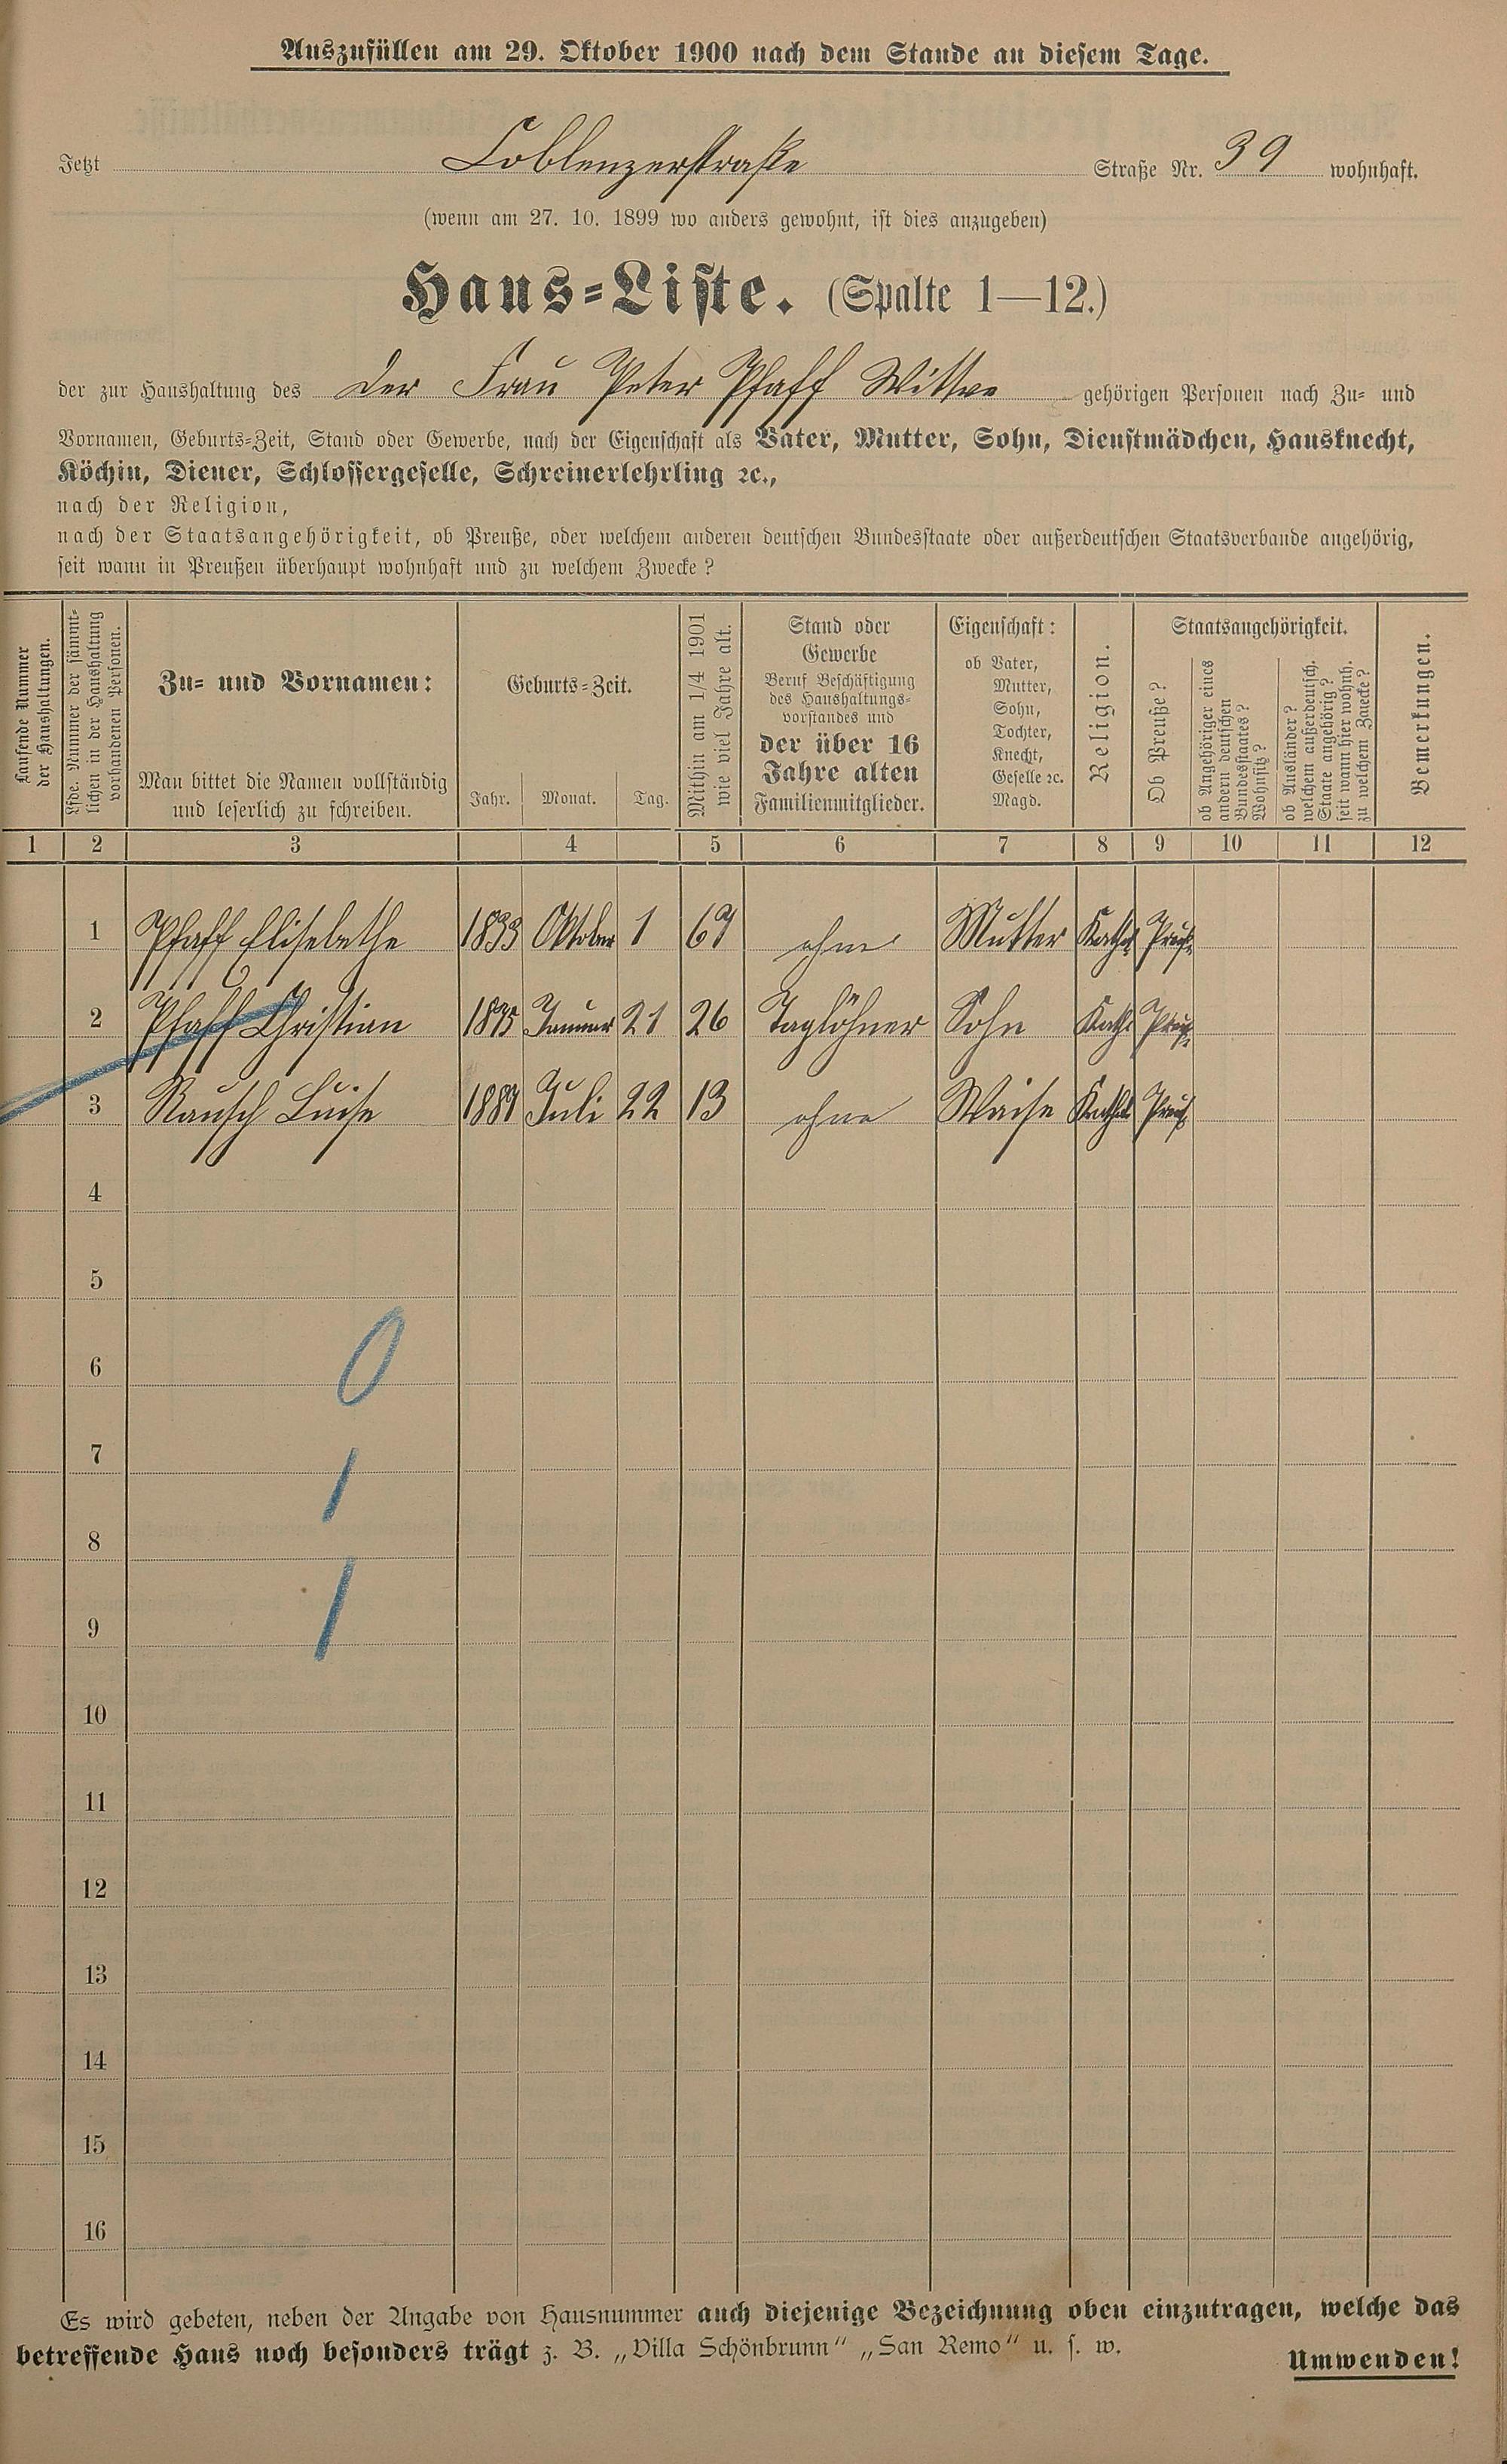 Auszufüllen am 29. Oktober 1900 nach dem Stande an diesem Tage.
Jetzt Coblenzerstraße Straße Nr. 39 wohnhaft.
(wenn am 27. 10. 1899 wo anders gewohnt, ist dies anzugeben)
Haus-Liste. (Spalte 1—12.)
der zur Haushaltung des der Frau Peter Pfaff Wittwe gehörigen Personen nach Zu- und
Vornamen, Geburts-Zeit, Stand oder Gewerbe, nach der Eigenschaft als Vater, Mutter, Sohn, Dienstmädchen, Hausknecht,
Köchin, Diener, Schlossergeselle, Schreinerlehrling ꝛc.,
nach der Religion,
nach der Staatsangehörigkeit, ob Preuße, oder welchem anderen deutschen Bundesstaate oder außerdeutschen Staatsverbande angehörig,
seit wann in Preußen überhaupt wohnhaft und zu welchem Zwecke?
Laufende Nummer
der Haushaltungen.
Lfde. Nummer der sämmt-
lichen in der Haushaltung
vorhandenen Personen.
Zu- und Vornamen:
Man bittet die Namen vollständig
und leserlich zu schreiben.
Geburts-Zeit.
Jahr. Monat. Tag.
Mithin am 1/4 1901
wie viel Jahre alt.
Stand oder
Gewerbe
Beruf Beschäftigung
des Haushaltungs-
vorstandes und
der über 16
Jahre alten
Familienmitglieder.
Eigenschaft:
ob Vater,
Mutter,
Sohn,
Tochter,
Knecht,
Geselle ꝛc.
Magd.
Religion.
Staatsangehörigkeit.
Ob Preuße?
ob Angehöriger eines
andern deutschen
Bundesstaates?
Wohnsitz?
ob Ausländer?
welchem außerdeutsch.
Staate angehörig?
seit wann hier wohnh.
zu welchem Zwecke?
Bemerkungen.
1 2 3 4 5 6 7 8 9 10 11 12
1 Pfaff Elisebethe 1833 Oktober 1 67 ohne Mutter Kathol Preuß
2 Pfaff Christian 1875 Januar 21 26 Taglöhner Sohn Kath Preuß
3 Rausch Luise 1887 Juli 22 13 ohne Waise Kathol Preuß
4
5
6
0
7
1
8
9
1
10
11
12
13
14
15
16
Es wird gebeten, neben der Angabe von Hausnummer auch diejenige Bezeichnung oben einzutragen, welche das
betreffende Haus noch besonders trägt z. B. „Villa Schönbrunn" „San Remo" u. s. w.
Umwenden!